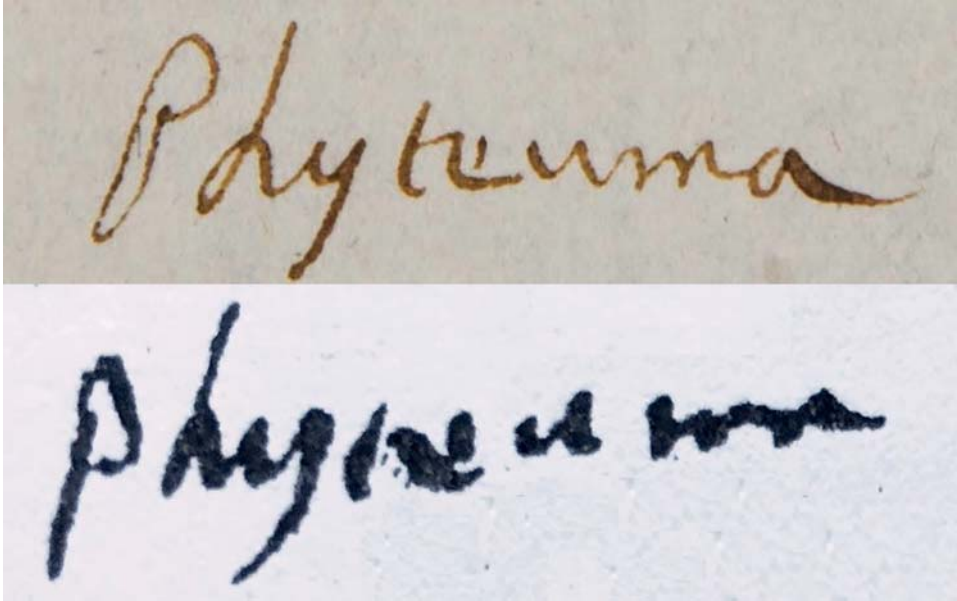 Phyteuma
Phyteuma